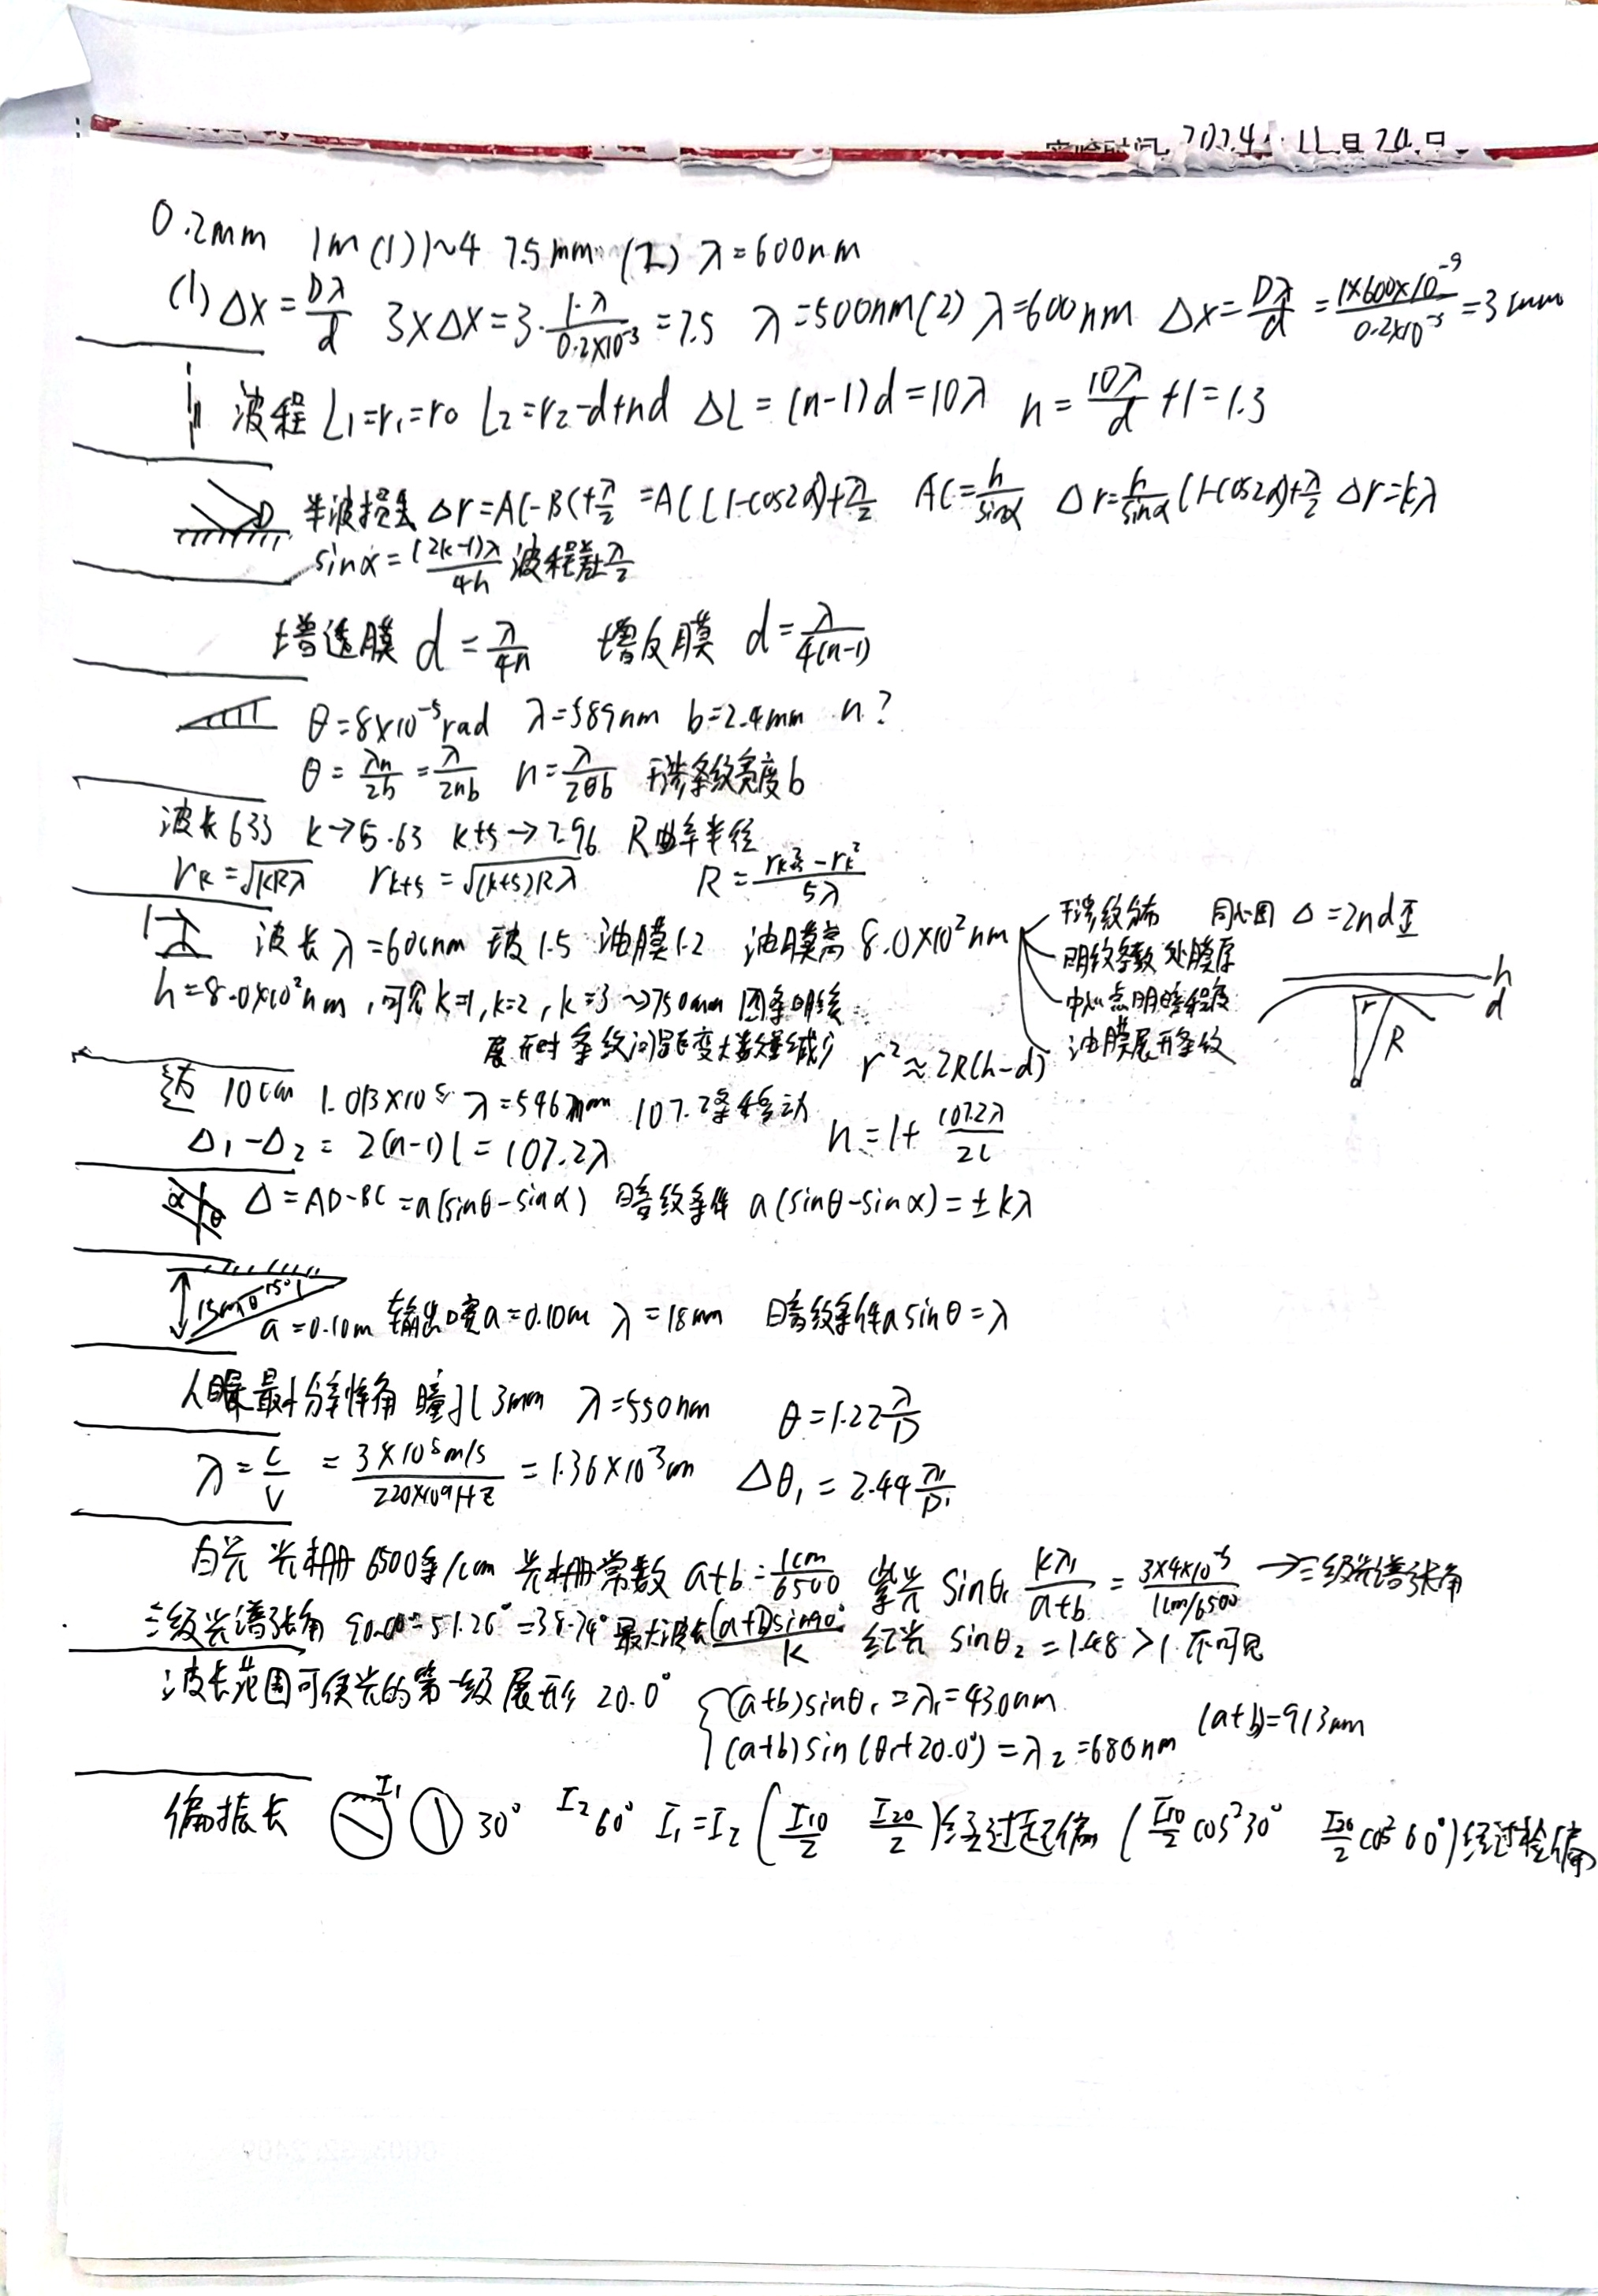 实验时间 2024年11月20日
0.2mm 1m (1) 1~4 7.5mm (2) λ=600nm
(1) Δx=Dλ/d 3×Δx=3·1·λ/0.2×10⁻³=7.5 λ=500nm (2) λ=600nm Δx=Dλ/d=1×600×10⁻⁹/0.2×10⁻³=3mm
波程 L₁=r₁=r₀ L₂=r₂-d+nd ΔL=(n-1)d=10λ n=10λ/d+1=1.3
半波损失 Δr=AC-BC+λ/2=AC(1-cos2α)+λ/2 AC=h/sinα Δr=h/sinα(1-cos2α)+λ/2 Δr=kλ
sinα=(2k-1)λ/4h 波程差λ/2
增透膜 d=λ/4n 增反膜 d=λ/4(n-1)
θ=8×10⁻⁵rad λ=589nm b=2.4mm n?
θ=λn/2b=λ/2nb n=λ/2θb 干涉条纹宽度b
波长633 k→5.63 k+5→7.96 R曲率半径
rk=√kRλ rk+5=√(k+5)Rλ R=rk+5²-rk²/5λ
波长λ=600nm 玻1.5 油膜1.2 油膜高8.0×10²nm 干涉纹分布 同心圆 Δ=2nd
明纹条数 处膜厚
h=8.0×10²nm,可见k=1,k=2,k=3→750nm 四条明纹 中心点明暗程度
展开时条纹间距变大数量减少 r²≈2R(h-d) 油膜展开条纹
h
d
r R
10cm 1.013×10⁵ λ=546nm 107.2条移动
Δ₁-Δ₂=2(n-1)l=107.2λ n=1+107.2λ/2l
α θ Δ=AD-BC=a(sinθ-sinα) 暗纹条件 a(sinθ-sinα)=±kλ
15m θ 15° a=0.10m 输出口宽a=0.10m λ=18mm 暗纹条件a sinθ=λ
人眼最小分辨角 瞳孔3mm λ=550nm θ=1.22λ/D
λ=c/ν=3×10⁸m/s/220×10⁹Hz=1.36×10⁻³m Δθ₁=2.44λ/D₁
白光 光栅6500条/cm 光栅常数 a+b=1cm/6500 紫光 sinθ₁ kλ₁/a+b=3×4×10⁻⁵/1cm/6500 →三级光谱张角
三级光谱张角 90.00°-51.26°=38.74° 最大波长(a+b)sin90°/k 红光 sinθ₂=1.48>1 不可见
波长范围可使光的第一级展开 20.0° (a+b)sinθ₁=λ₁=430nm
(a+b)sin(θ₁+20.0°)=λ₂=680nm (a+b)=913nm
偏振长 I₁ 30° I₂ 60° I₁=I₂ (I₁₀/2 I₂₀/2)经过起偏 (I₁₀/2 cos²30° I₂₀/2 cos²60°)经过检偏